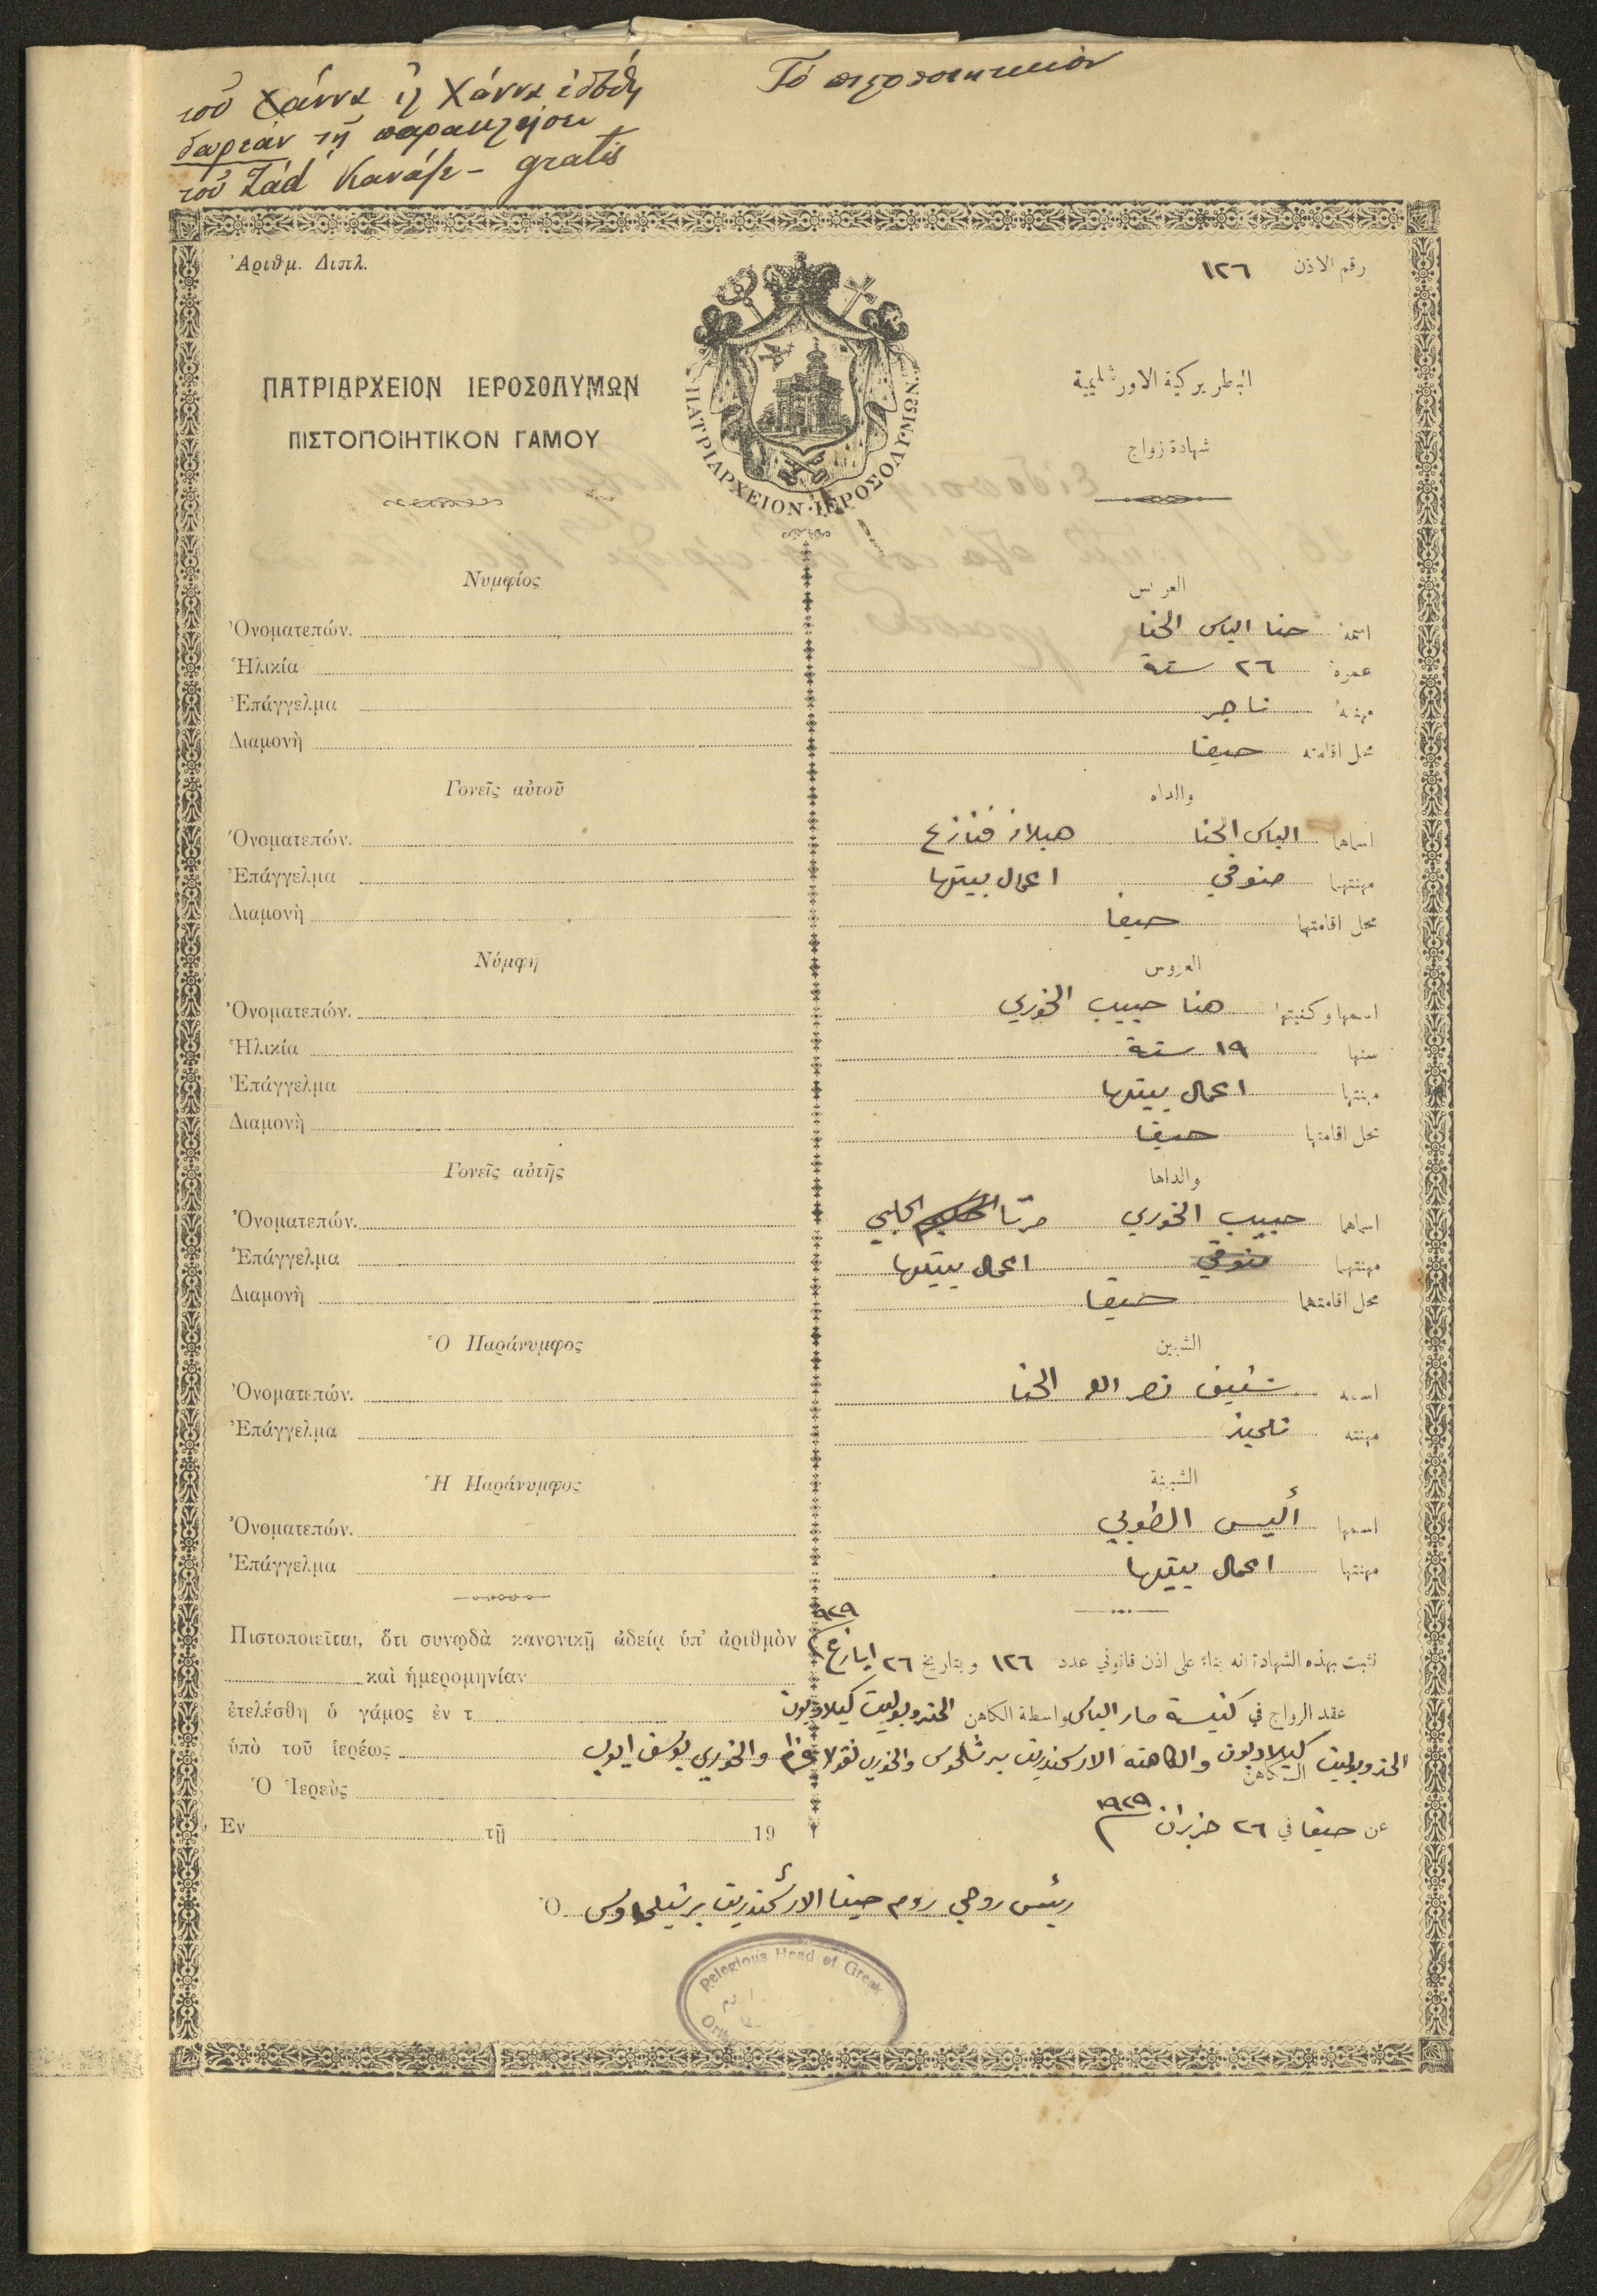 Τό πιστοποιητικόν
τοῦ Χάννα ἒλ Χάννα ἐδόθη
δωρεάν τῇ παρακλήσει
τοῦ Ζάd Κανάζε - gratis
Ἀριθμ. Διπλ.
رقم الاذن ١٢٦
ΠΑΤΡΙΑΡΧΕΙΟΝ ΙΕΡΟΣΟΛΥΜΩΝ
البطريركية الاورشليمية
ΠΙΣΤΟΠΟΙΗΤΙΚΟΝ ΓΑΜΟΥ
شهادة زواج
ΠΑΤΡΙΑΡΧΕΙΟΝ·ΙΕΡΟΣΟΛΥΜΩΝ·
Νυμφίος
العريس
Ὀνοματεπών.
اسمهُ حنا الياس الحنا
Ἡλικία
عمرهُ ٢٦ سنة
Ἐπάγγελμα
مهنتهُ تاجر
Διαμονὴ
محل اقامته حيفا
Γονεῖς αὐτοῦ
والداه
Ὀνοματεπών.
اسماهما الياس الحنا هيلانه قنازع
Ἐπάγγελμα
مهنتهما متوفي اعمال بيتها
Διαμονὴ
محل اقامتهما حيفا
Νύμφη
العروس
Ὀνοματεπών.
اسمها وكنيتها هنا حبيب الخوري
Ἡλικία
سنها ١٩ سنة
Ἐπάγγελμα
مهنتها اعمال بيتها
Διαμονὴ
محل اقامتها حيفا
Γονεῖς αὐτῆς
والداها
Ὀνοματεπών.
اسماهما حبيب الخوري مرتا الحلبي
Ἐπάγγελμα
مهنتهما متوفي اعمال بيتها
Διαμονὴ
محل اقامتهما حيفا
Ὁ Παράνυμφος
الشبين
Ὀνοματεπών.
اسمه شفيق نصر الله الحنا
Ἐπάγγελμα
مهنته تلميذ
Ἡ Παράνυμφος
الشبينة
Ὀνοματεπών.
اسمها أليس الطوبي
Ἐπάγγελμα
مهنتها اعمال بيتها
Πιστοποιεῖται, ὅτι συνῳδὰ κανονικῇ ἀδείᾳ ὑπ' ἀριθμὸν
καὶ ἡμερομηνίαν
تثبت بهذه الشهادة انه بناءً على اذن قانوني عدد ١٢٦ وبتاريخ ٢٦ ايار ٩٢٩
ἐτελέσθη ὁ γάμος ἐν τ
عقد الزواج في كنيسة مار الياس بواسطة الكاهن المتروبوليت كيلاديون
ὑπὸ τοῦ ἱερέως
المتروبوليت كيلاديون والكاهنه الارشمندريت برثلماوس والخوري نقولا والخوري يوسف ايوب
Ὁ Ἱερεὺς
الكاهن
Ἐν τῇ 19
عن حيفا في ٢٦ حزيران ١٩٢٩
Ὁ رئيس روحي روم حيفا الارشمندريت برثلماوس
Relegious Head of Greek
Orth